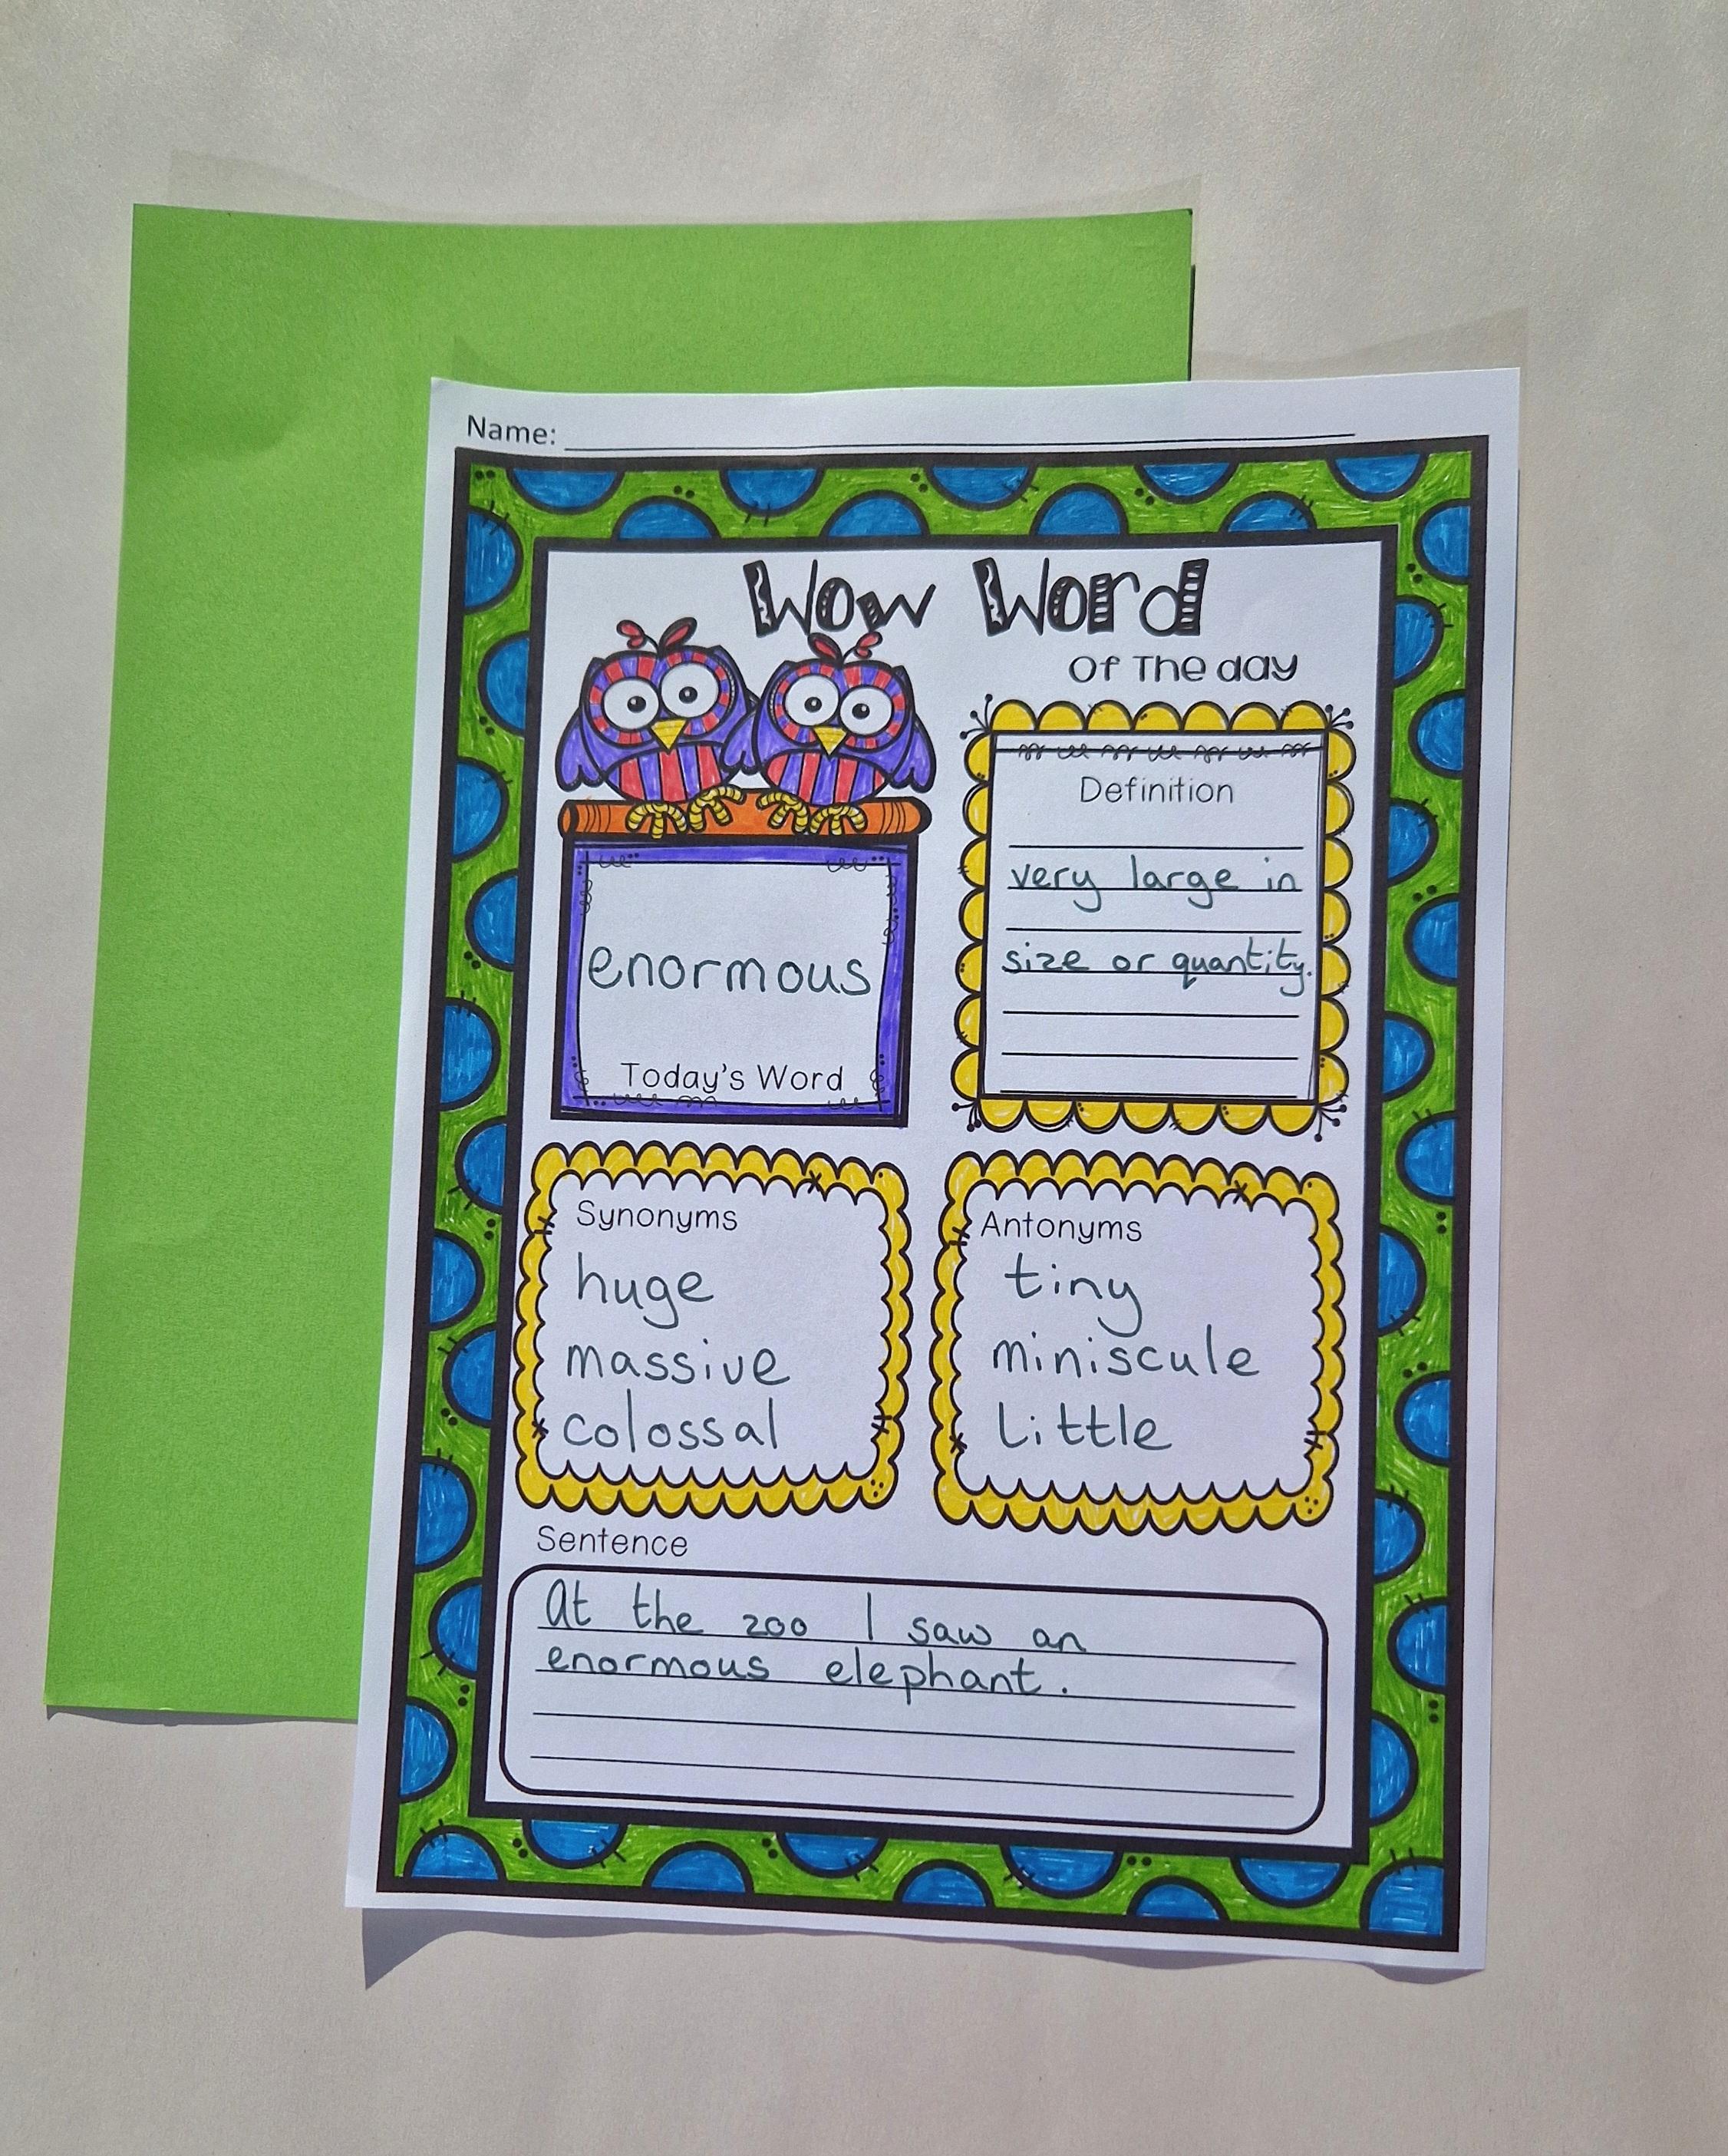 Name:
Wow Word
Of The day
enormous
Today's Word
Definition
very large in
size or quantity.
Synonyms
huge
massive
colossal
Antonyms
tiny
miniscule
Little
Sentence
At the zoo I saw an
enormous elephant.